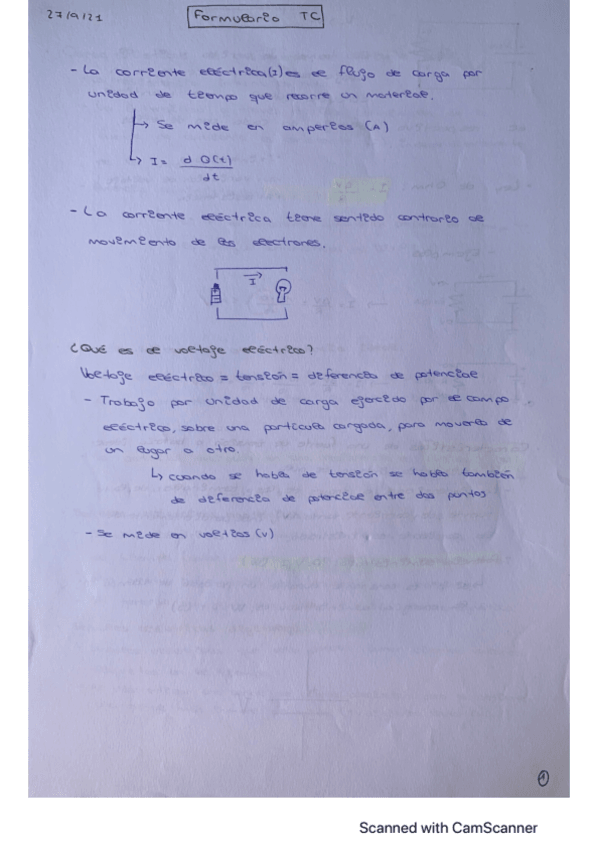 27/9/21
Formulario TC
- La corriente eléctrica (I) es el flujo de carga por
unidad de tiempo que recorre un material.
↳ Se mide en amperios (A)
↳ I = d Q(t) / dt
- La corriente eléctrica tiene sentido contrario al
movimiento de los electrones.
I
¿Qué es el voltaje eléctrico?
Voltaje eléctrico = tensión = diferencia de potencial
- Trabajo por unidad de carga ejercido por el campo
eléctrico, sobre una partícula cargada, para moverla de
un lugar a otro.
↳ cuando se habla de tensión se habla también
de diferencia de potencial entre dos puntos
- Se mide en voltios (V)
1
Scanned with CamScanner